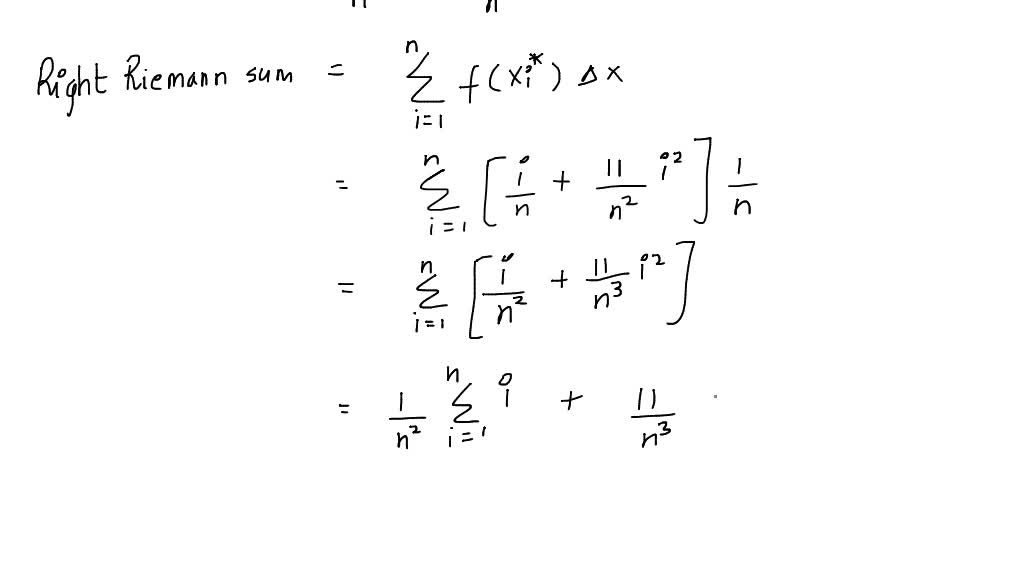 n n
Right Riemann sum = \sum_{i=1}^{n} f(x_i^*) Δx
= \sum_{i=1}^{n} [\frac{i}{n} + \frac{11}{n^2} i^2] \frac{1}{n}
= \sum_{i=1}^{n} [\frac{i}{n^2} + \frac{11}{n^3} i^2]
= \frac{1}{n^2} \sum_{i=1}^{n} i + \frac{11}{n^3}